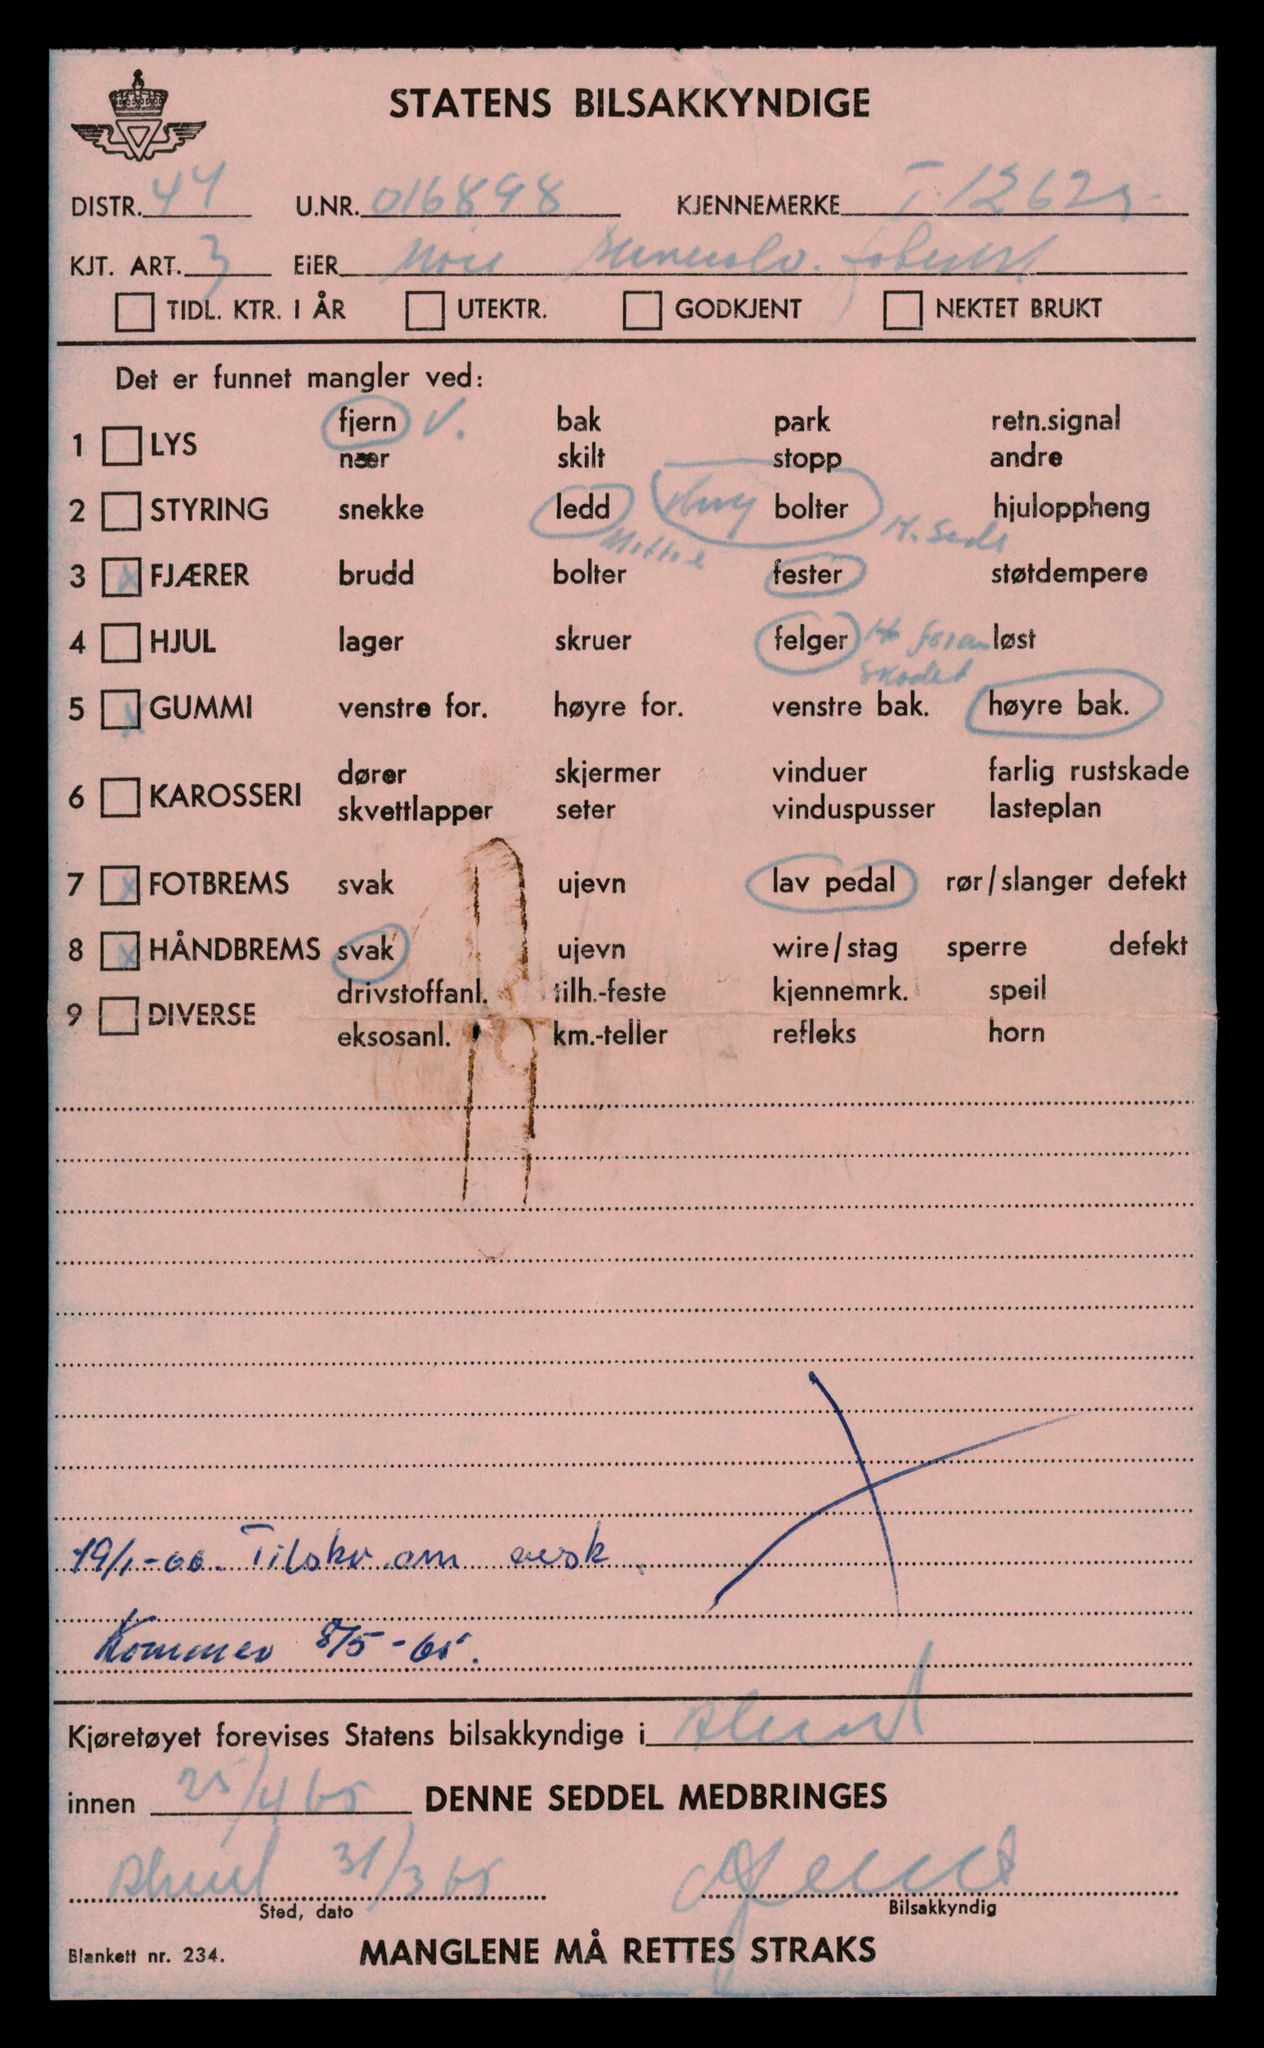 STATENS BILSAKKYNDIGE
DISTR. 44 U.NR. 016898 KJENNEMERKE T-1262
KJT. ART. 3 EiER
TIDL. KTR. I ÅR UTEKTR. GODKJENT NEKTET BRUKT
Det er funnet mangler ved:
fjern V. bak park retn.signal
1 LYS
nær skilt stopp andre
2 STYRING snekke ledd bolter hjuloppheng
3 x FJÆRER brudd bolter fester støtdempere
4 HJUL lager skruer felger foran løst
5 x GUMMI venstre for. høyre for. venstre bak. høyre bak.
dører skjermer vinduer farlig rustskade
6 KAROSSERI
skvettlapper seter vinduspusser lasteplan
7 x FOTBREMS svak ujevn lav pedal rør/slanger defekt
8 x HÅNDBREMS svak ujevn wire/stag sperre defekt
drivstoffanl. tilh.-feste kjennemrk. speil
9 DIVERSE
eksosanl. km.-teller refleks horn
19/1-66. Tilskr. om
Kommer 8/5-65.
Kjøretøyet forevises Statens bilsakkyndige i
innen 25/4 65 DENNE SEDDEL MEDBRINGES
31/3 65
Sted, dato Bilsakkyndig
Blankett nr. 234. MANGLENE MÅ RETTES STRAKS